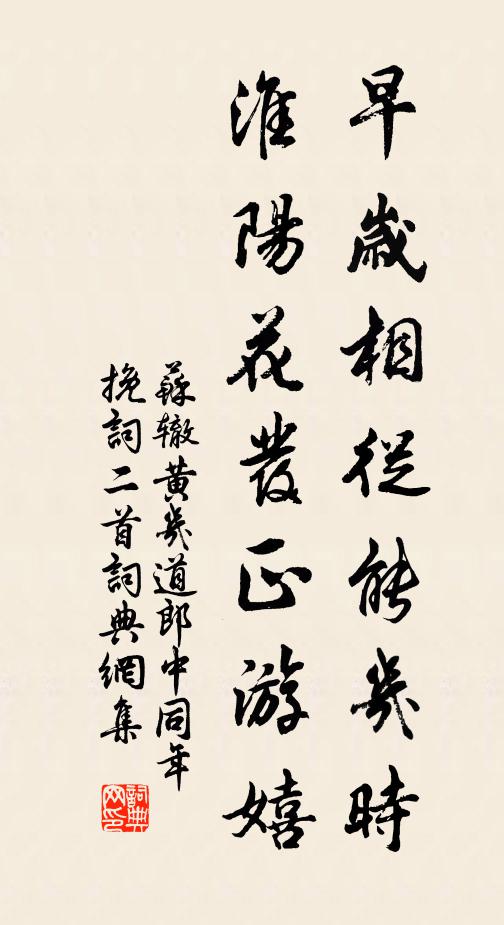 早歲相從能幾時
淮陽花發正游嬉
蘇轍黃幾道郎中同年
挽詞二首詞典網集
詞典网印